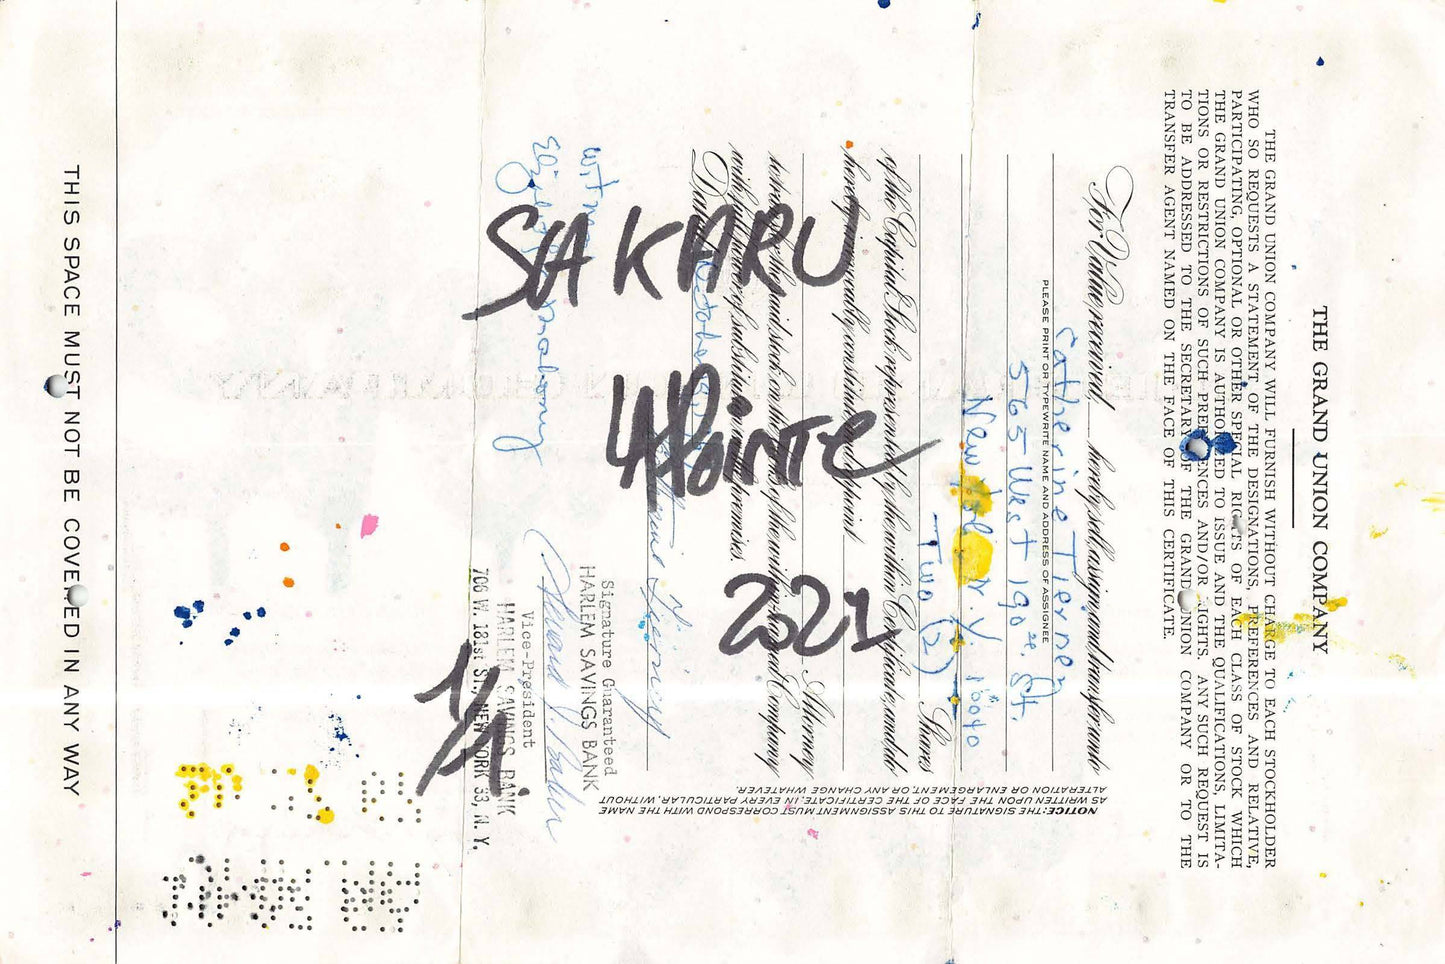 SAKARU
LAPOINTE
2021
1/1.
THE GRAND UNION COMPANY
THE GRAND UNION COMPANY WILL FURNISH WITHOUT CHARGE TO EACH STOCKHOLDER
WHO SO REQUESTS A STATEMENT OF THE DESIGNATIONS, PREFERENCES AND RELATIVE,
PARTICIPATING, OPTIONAL OR OTHER SPECIAL RIGHTS OF EACH CLASS OF STOCK WHICH
THE GRAND UNION COMPANY IS AUTHORIZED TO ISSUE AND THE QUALIFICATIONS, LIMITA-
TIONS OR RESTRICTIONS OF SUCH PREFERENCES AND/OR RIGHTS. ANY SUCH REQUEST IS
TO BE ADDRESSED TO THE SECRETARY OF THE GRAND UNION COMPANY OR TO THE
TRANSFER AGENT NAMED ON THE FACE OF THIS CERTIFICATE.
For Value received hereby sell, assign and transfer unto
PLEASE PRINT OR TYPEWRITE NAME AND ADDRESS OF ASSIGNEE
Catherine Tierney
565 West 190th St.
New York N.Y. 10040
Two (2) Shares
of the Capital Stock represented by the within Certificate, and do
hereby irrevocably constitute and appoint
Attorney
to transfer the said stock on the books of the within named Company
with full power of substitution in the premises.
Dated October
Catherine Tierney
NOTICE: THE SIGNATURE TO THIS ASSIGNMENT MUST CORRESPOND WITH THE NAME
AS WRITTEN UPON THE FACE OF THE CERTIFICATE, IN EVERY PARTICULAR, WITHOUT
ALTERATION OR ENLARGEMENT, OR ANY CHANGE WHATEVER.
witness
Signature Guaranteed
HARLEM SAVINGS BANK
Vice-President
HARLEM SAVINGS BANK
706 W. 181st ST., NEW YORK 33, N. Y.
THIS SPACE MUST NOT BE COVERED IN ANY WAY